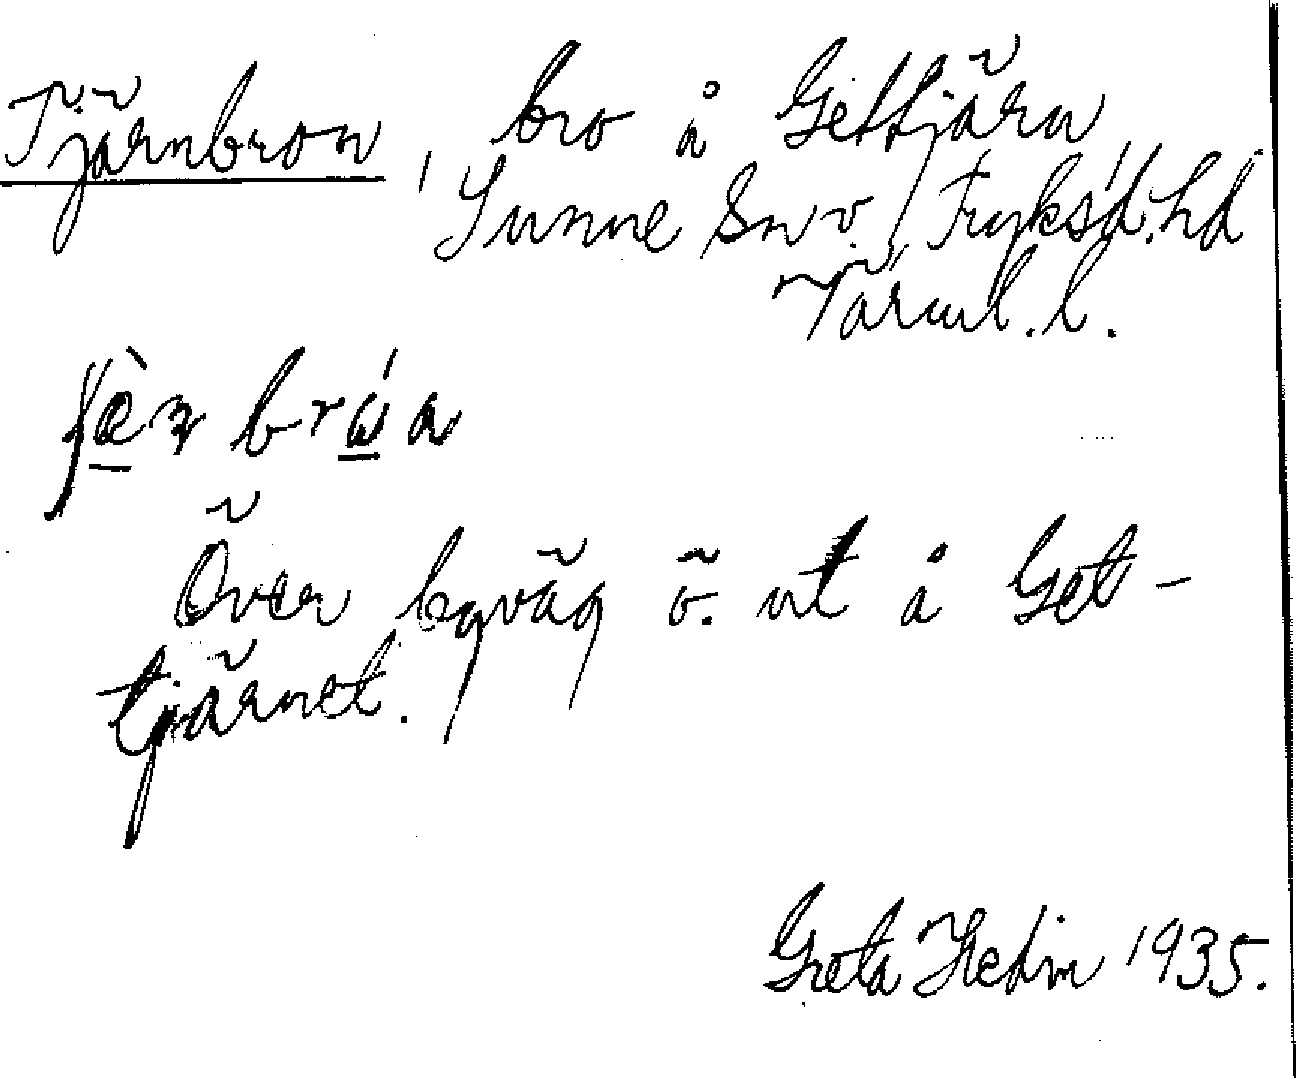 Tjärnbron, bro å Gettjärn
Sunne sn v. Fryksd. hd
Värml. l.
Över byväg ö. ut å Get-
tjärnet.
Greta Hedin 1935.